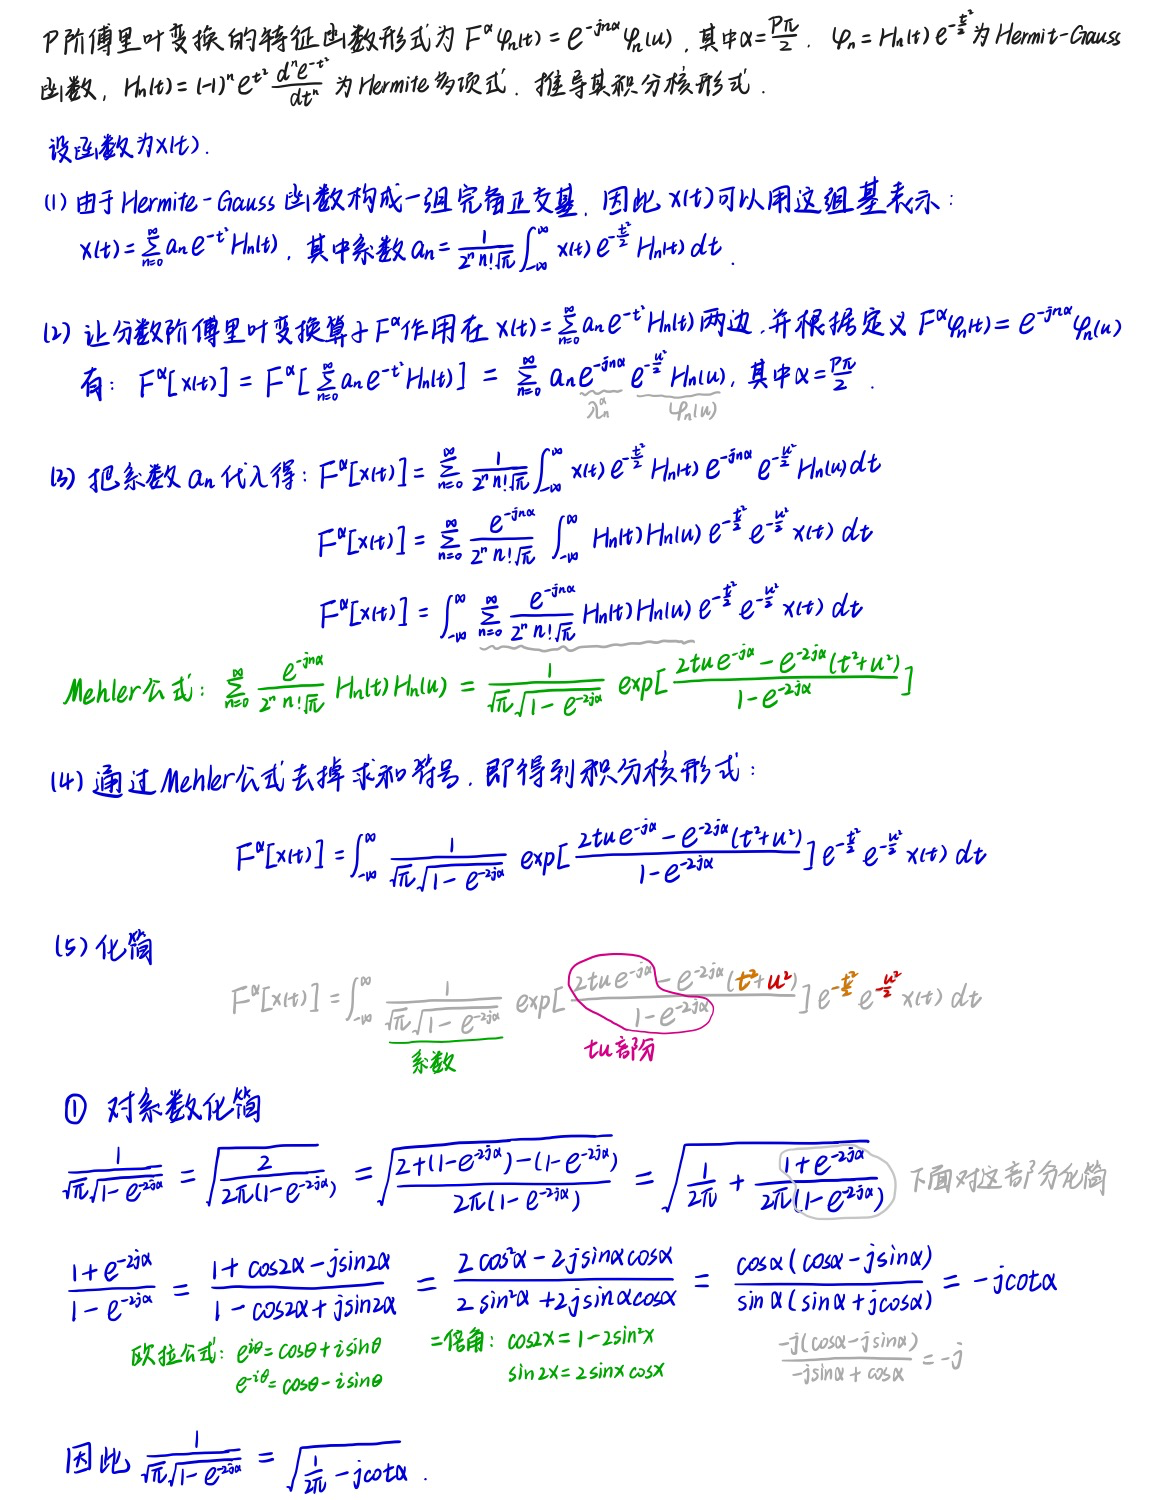 P阶傅里叶变换的特征函数形式为 F^α φₙ(t) = e^{-jnα} φₙ(u)，其中α = Pπ/2. φₙ = Hₙ(t) e^{-t²/2} 为 Hermit-Gauss
函数，Hₙ(t) = (-1)ⁿ e^{t²} dⁿe^{-t²}/dtⁿ 为 Hermite 多项式. 推导其积分核形式.
设函数为x(t).
(1) 由于 Hermite-Gauss 函数构成一组完备正交基，因此 x(t)可以用这组基表示：
x(t) = ∑_{n=0}^{∞} aₙ e^{-t²} Hₙ(t)，其中系数 aₙ = 1/(2ⁿ n! √π) ∫_{-∞}^{∞} x(t) e^{-t²/2} Hₙ(t) dt .
(2) 让分数阶傅里叶变换算子 F^α 作用在 x(t) = ∑_{n=0}^{∞} aₙ e^{-t²} Hₙ(t) 两边，并根据定义 F^α φₙ(t) = e^{-jnα} φₙ(u)
有： F^α[x(t)] = F^α[∑_{n=0}^{∞} aₙ e^{-t²} Hₙ(t)] = ∑_{n=0}^{∞} aₙ e^{-jnα} e^{-u²/2} Hₙ(u)，其中α = Pπ/2 .
λₙ^α φₙ(u)
(3) 把系数 aₙ 代入得： F^α[x(t)] = ∑_{n=0}^{∞} 1/(2ⁿ n! √π) ∫_{-∞}^{∞} x(t) e^{-t²/2} Hₙ(t) e^{-jnα} e^{-u²/2} Hₙ(u) dt
F^α[x(t)] = ∑_{n=0}^{∞} e^{-jnα}/(2ⁿ n! √π) ∫_{-∞}^{∞} Hₙ(t) Hₙ(u) e^{-t²/2} e^{-u²/2} x(t) dt
F^α[x(t)] = ∫_{-∞}^{∞} ∑_{n=0}^{∞} e^{-jnα}/(2ⁿ n! √π) Hₙ(t) Hₙ(u) e^{-t²/2} e^{-u²/2} x(t) dt
Mehler公式： ∑_{n=0}^{∞} e^{-jnα}/(2ⁿ n! √π) Hₙ(t) Hₙ(u) = 1/(√π √(1 - e^{-2jα})) exp[(2tu e^{-jα} - e^{-2jα}(t²+u²))/(1 - e^{-2jα})]
(4) 通过Mehler公式去掉求和符号，即得到积分核形式：
F^α[x(t)] = ∫_{-∞}^{∞} 1/(√π √(1 - e^{-2jα})) exp[(2tu e^{-jα} - e^{-2jα}(t²+u²))/(1 - e^{-2jα})] e^{-t²/2} e^{-u²/2} x(t) dt
(5) 化简
F^α[x(t)] = ∫_{-∞}^{∞} 1/(√π √(1 - e^{-2jα})) exp[(2tu e^{-jα} - e^{-2jα}(t²+u²))/(1 - e^{-2jα})] e^{-t²/2} e^{-u²/2} x(t) dt
系数 tu部分
① 对系数化简
1/(√π √(1 - e^{-2jα})) = √(2/(2π(1 - e^{-2jα}))) = √((2+(1-e^{-2jα})-(1-e^{-2jα}))/(2π(1 - e^{-2jα}))) = √(1/2π + (1+e^{-2jα})/(2π(1-e^{-2jα}))) 下面对这部分化简
(1+e^{-2jα})/(1-e^{-2jα}) = (1+cos2α-jsin2α)/(1-cos2α+jsin2α) = (2cos²α-2jsinαcosα)/(2sin²α+2jsinαcosα) = cosα(cosα-jsinα)/(sinα(sinα+jcosα)) = -jcotα
欧拉公式： e^{iθ} = cosθ + i sinθ 二倍角： cos2x = 1 - 2sin²x -j(cosα-jsinα)/(-jsinα+cosα) = -j
e^{-iθ} = cosθ - i sinθ sin2x = 2sinx cosx
因此 1/(√π √(1-e^{-2jα})) = √(1/2π - jcotα) .